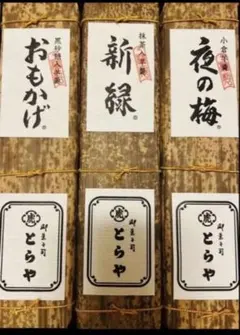 黒砂糖入羊羹
おもかげ
抹茶入羊羹
新緑
小倉羊羹
夜の梅
虎
御菓子司
とらや
虎
御菓子司
とらや
虎
御菓子司
とらや